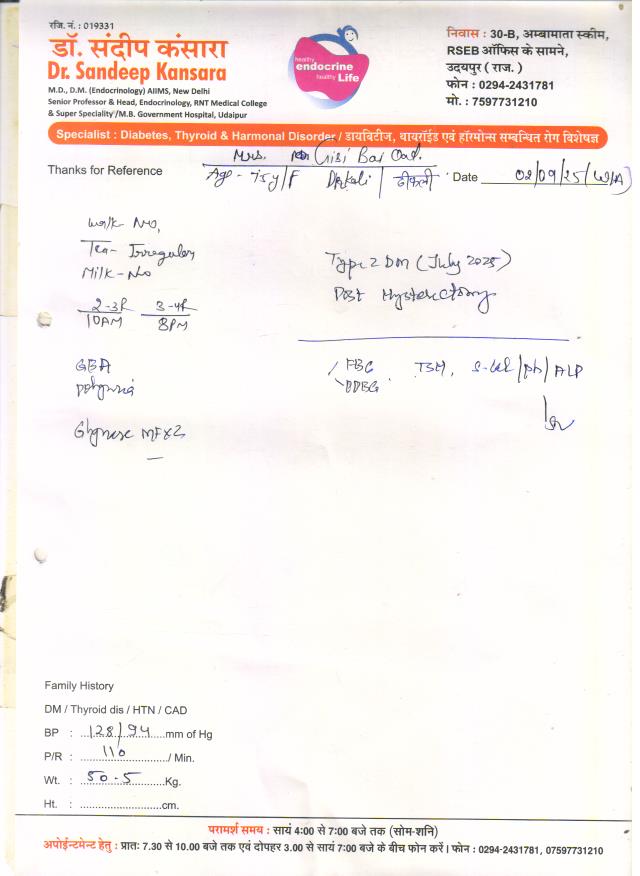 रजि. नं. : 019331
डॉ. संदीप कंसारा
Dr. Sandeep Kansara
M.D., D.M. (Endocrinology) AIIMS, New Delhi
Senior Professor & Head, Endocrinology, RNT Medical College
& Super Speciality /M.B. Government Hospital, Udaipur
healthy
endocrine
healthy Life
निवास : 30-B, अम्बामाता स्कीम,
RSEB ऑफिस के सामने,
उदयपुर ( राज. )
फोन : 0294-2431781
मो. : 7597731210
Specialist : Diabetes, Thyroid & Harmonal Disorder / डायबिटीज, थायरॉईड एवं हॉरमोन्स सम्बन्धित रोग विशेषज्ञ
Mrs. Bai
Thanks for Reference Age - 75y/F Date 02/09/25
Walk - No,
Tea - Irregular
Milk - No
2-3R 3-4R
10AM 8PM
Type 2 DM (July 2025)
Post Hysterectomy
GBA
FBG TSH,
PPBG
/ ALP
MFX2
Family History
DM / Thyroid dis / HTN / CAD
BP : 128/94 mm of Hg
P/R : 110 / Min.
Wt. : 50.5 Kg.
Ht. : ............................cm.
परामर्श समय : सायं 4:00 से 7:00 बजे तक (सोम-शनि)
अपोईन्टमेन्ट हेतु : प्रातः 7.30 से 10.00 बजे तक एवं दोपहर 3.00 से सायं 7:00 बजे के बीच फोन करें। फोन : 0294-2431781, 07597731210